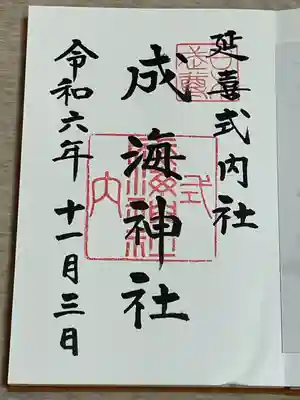 延喜式内社
成海神社
令和六年十一月三日
式内